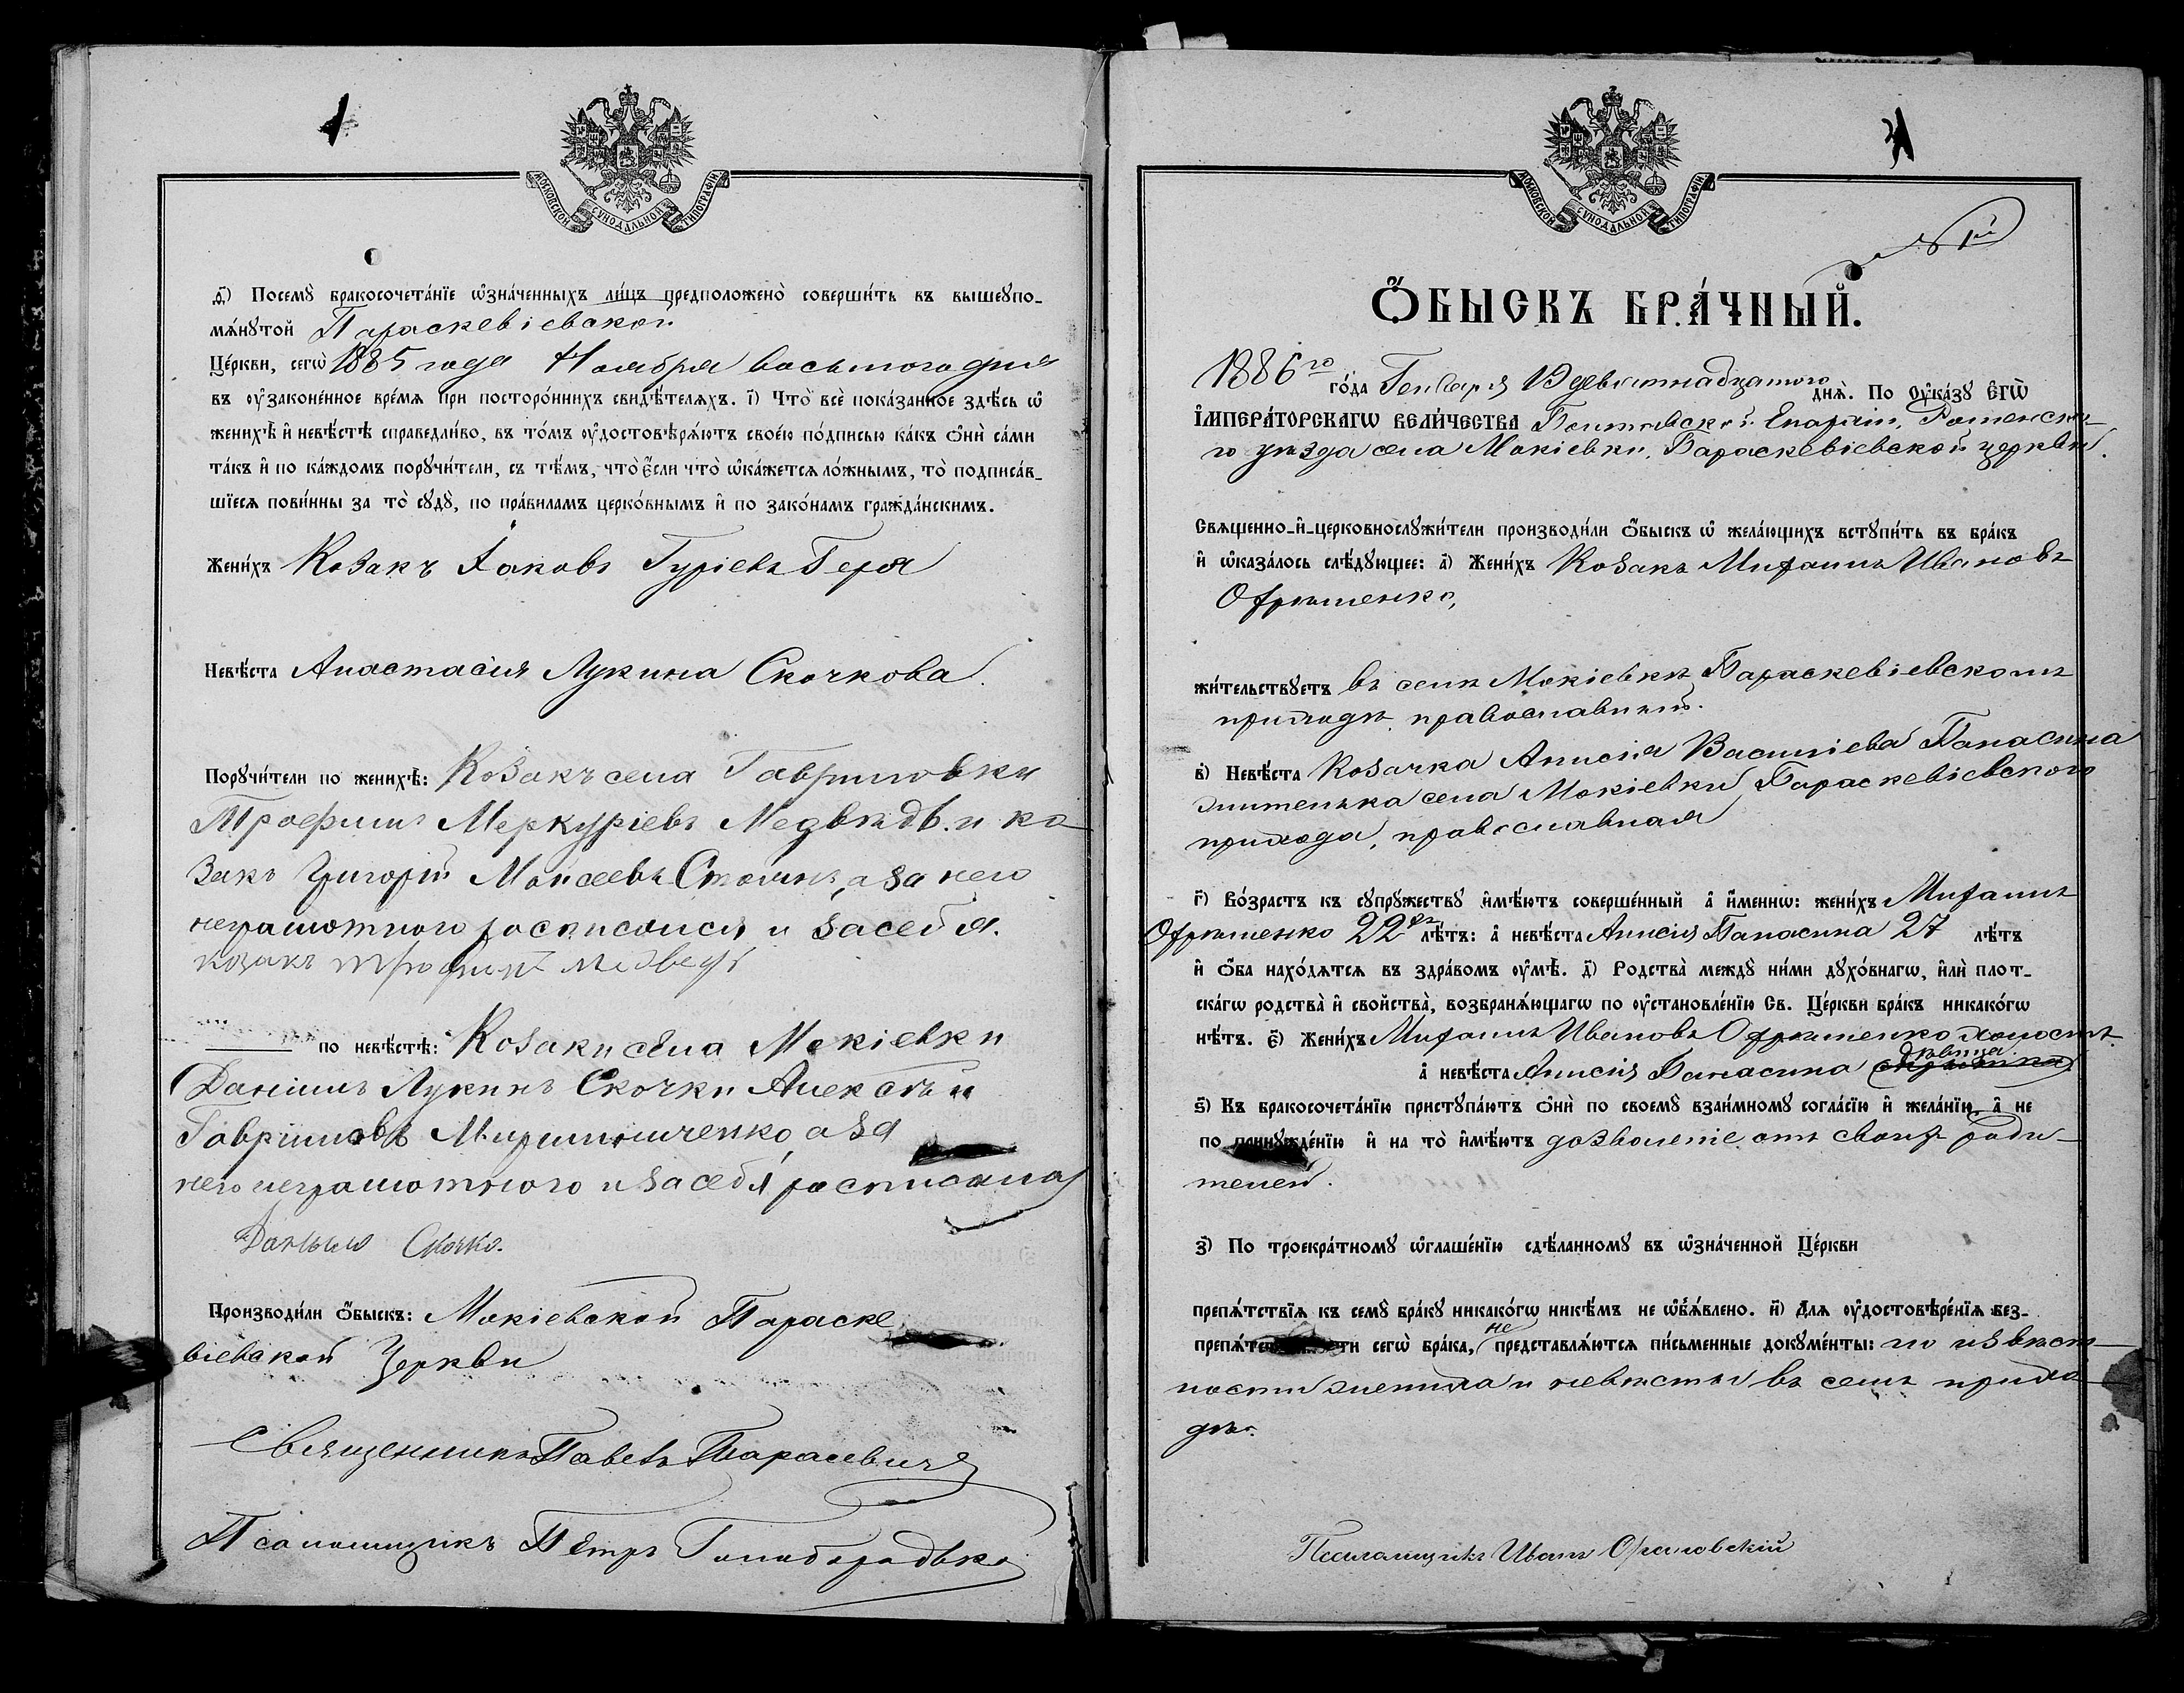 1
МОСКОВСКОЙ СѴНОДАЛЬНОЙ ТИПОГРАФІИ
ѳ҃) Посемꙋ̀ бракосочета́нїе ѡ҆зна́ченныхъ ли́цъ предположено̀ соверши́ть въ вышеꙋпо-
мѧ́нꙋтой Параскевіевской
Це́ркви, сегѡ̀ 1885 года Ноября восьмого дня
въ ᲂу҆законе́нное вре́мѧ при посторо́ннихъ свидѣ́телѧхъ. і҃) Что̀ всѐ пока́занное здѣ́сь ѡ҆
женихѣ̀ и҆ невѣ́стѣ справедли́во, въ то́мъ ᲂу҆достовѣрѧ́ютъ свое́ю по́дписью ка́къ ѻ҆нѝ са́ми
та́къ и҆ по ка́ждомъ порꙋчи́тели, съ тѣ́мъ, что̀ є҆́сли что̀ ѡ҆ка́жетсѧ ло́жнымъ, то̀ подписа́в-
шїесѧ пови́нны за то̀ сꙋдꙋ̀, по пра́виламъ церко́внымъ и҆ по зако́намъ гражда́нскимъ.
Жени́хъ Козакъ Іаковъ Гуріевъ Геря
Невѣ́ста Анастасія Лукина Скочкова.
Порꙋчи́тели по женихѣ̀: Козакъ села Гавриловки
Трофимъ Меркуріевъ Медвѣдь и ко-
закъ Григорій Моисеевъ а за него
неграмотного росписался и за себя.
козакъ трофимъ медведь
по невѣ́стѣ: Козаки села Мокіевки
Даніилъ Лукинъ Скочки Алексѣй
Гавріиловъ а за
него неграмотного и за себя росписался
Данило Скочко.
Производи́ли ѻ҆́быскъ: Мокіевской Параске
віевской Церкви
Священникъ Павелъ Тарасевичъ
Псаломщикъ Петръ Голобородько
МОСКОВСКОЙ СѴНОДАЛЬНОЙ ТИПОГРАФІИ
№ 1й
Ѻ҆́БЫСКЪ БРА́ЧНЫЙ.
1886го го́да Генваря 19 девятнадцатого днѧ̀. По Оу҆ка́зꙋ Є҆гѡ̀
І҆мпера́торскагѡ Вели́чества Полтавской Епархіи, Роменска-
го уѣзда села Мокіевки, Параскевіевской церкви.
Свѧщенно-и҆-церковнослꙋжи́тели производи́ли ѻ҆́быскъ ѡ҆ жела́ющихъ встꙋпи́ть въ бра́къ
и҆ ѡ҆каза́лось слѣ́дꙋющее: а҃) Жени́хъ Козакъ Михаилъ Ивановъ
Охрименко,
жи́тельствꙋетъ въ селѣ Мокіевкѣ Параскевіевскомъ
приходѣ, православный.
в҃) Невѣ́ста Козачка Анисія Василіева Панасина
жителька села Мокіевки Параскевіевского
прихода, православная
г҃) Во́зрастъ къ сꙋпрꙋ́жествꙋ и҆мѣ́ютъ соверше́нный а҆̀ и҆́меннѡ: жени́хъ Михаилъ
Охрименко 22 лѣ́тъ: а҆̀ невѣ́ста Анисія Панасина 27 лѣ́тъ
и҆ ѻ҆́ба нахо́дѧтсѧ въ здра́вомъ ᲂу҆мѣ̀. д҃) Родства̀ междꙋ̀ ни́ми дꙋхо́внагѡ, и҆лѝ плот-
ска́гѡ родства̀ и҆ свойства̀, возбранѧ́ющагѡ по ᲂу҆становле́нїю Св. Це́ркви бра́къ никако́гѡ
нѣ́тъ. є҃) Жени́хъ Михаилъ Ивановъ Охрименко холостъ
а҆̀ невѣ́ста Анисія Панасина дѣвица
ѕ҃) Къ бракосочета́нїю пристꙋпа́ютъ ѻ҆нѝ по своемꙋ̀ взаи́мномꙋ согла́сїю и҆ жела́нїю, а҆̀ не
по принꙋжде́нїю и҆ на то̀ и҆мѣ́ютъ дозволеніе отъ своихъ роди-
телей.
з҃) По троекра́тномꙋ ѡ҆глаше́нїю сдѣ́ланномꙋ въ ѡ҆зна́ченной Це́ркви
препѧ́тствїѧ къ семꙋ̀ бра́кꙋ никако́гѡ никѣ́мъ не ѡ҆б̾ѧ́влено. и҃) Длѧ ᲂу҆достовѣре́нїѧ без-
препѧ́тс ти сегѡ̀ бра́ка, не представлѧ́ютсѧ пи́сьменные докꙋме́нты: по извѣст-
ности жениха и невѣсты въ семъ прихо
дѣ.
Псаломщикъ Иванъ